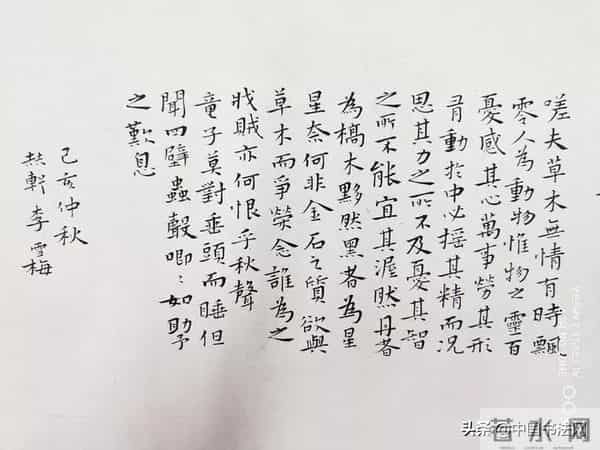 嗟夫草木無情有時飄
零人為動物惟物之靈百
憂感其心萬事勞其形
有動於中必搖其精而況
思其力之所不及憂其智
之所不能宜其渥然丹者
為槁木黟然黑者為星
星奈何非金石之質欲與
草木而爭榮念誰為之
戕賊亦何恨乎秋聲
童子莫對垂頭而睡但
聞四壁蟲聲唧〻如助予
之歎息
己亥仲秋
軒李雪梅
头条@中国书法网